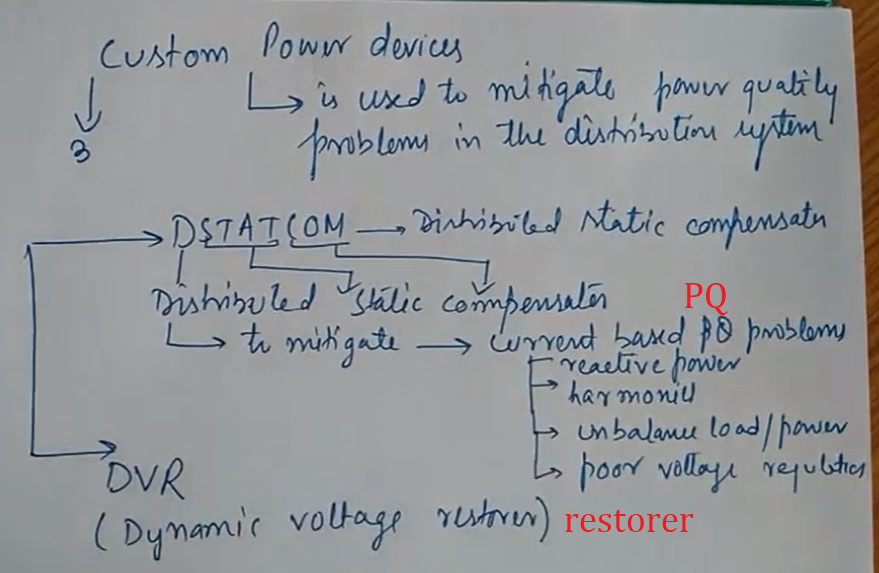 Custom Power devices
is used to mitigate power quality
3
problems in the distribution system
DSTATCOM Distributed static compensator
Distributed static compensator
PQ
to mitigate current based PQ problems
reactive power
harmonics
unbalance load/power
poor voltage regulation
DVR
(Dynamic voltage restorer) restorer